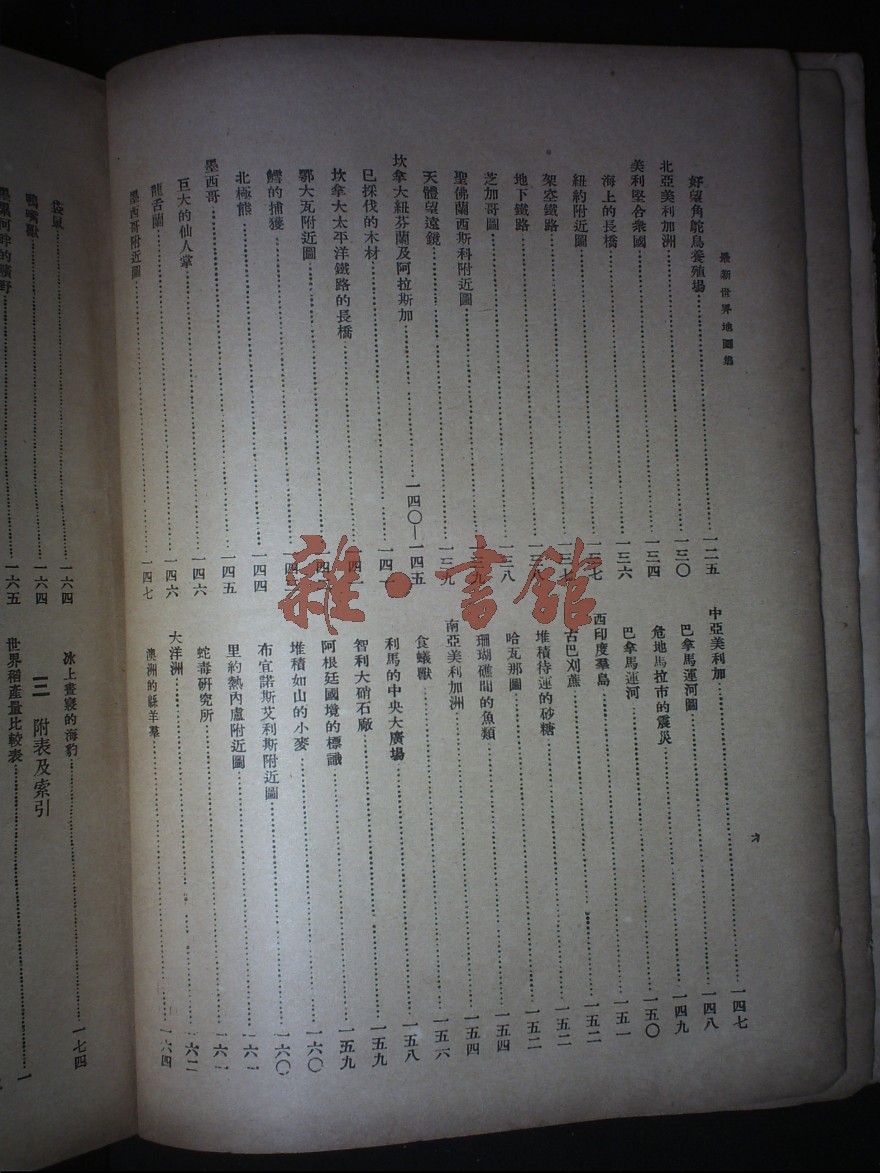 最新世界地圖集
好望角鴕鳥養殖場……一二五
北亞美利加洲……一三〇
美利堅合衆國……一三四
海上的長橋……一三六
紐約附近圖……一三七
架空鐵路……一三七
地下鐵路……一三八
芝加哥圖……一三八
聖佛蘭西斯科附近圖……一三九
天體望遠鏡……一三九
坎拿大紐芬蘭及阿拉斯加……一四〇—一四五
已採伐的木材……一四一
坎拿大太平洋鐵路的長橋……
鄂大瓦附近圖……
鱈的捕獲……
北極熊……一四四
墨西哥……一四五
巨大的仙人掌……一四六
龍舌蘭……一四六
墨西哥附近圖……一四七
中亞美利加……一四七
巴拿馬運河圖……一四八
危地馬拉市的震災……一四九
巴拿馬運河……一五〇
西印度羣島……一五一
古巴刈蔗……一五二
堆積待運的砂糖……一五二
哈瓦那圖……一五二
珊瑚礁間的魚類……一五四
南亞美利加洲……一五四
食蟻獸……一五六
利馬的中央大廣場……一五八
智利大硝石廠……一五九
阿根廷國境的標識……一五九
堆積如山的小麥……一六〇
布宜諾斯艾利斯附近圖……一六〇
里約熱內盧附近圖……一六一
蛇毒研究所……一六一
大洋洲……一六二
澳洲的緜羊羣……一六四
六
袋鼠……一六四
鴨嘴獸……一六四
墨累河畔的曠野……一六五
冰上晝寢的海豹……一七四
三 附表及索引
世界稻產量比較表……一
雜·書館